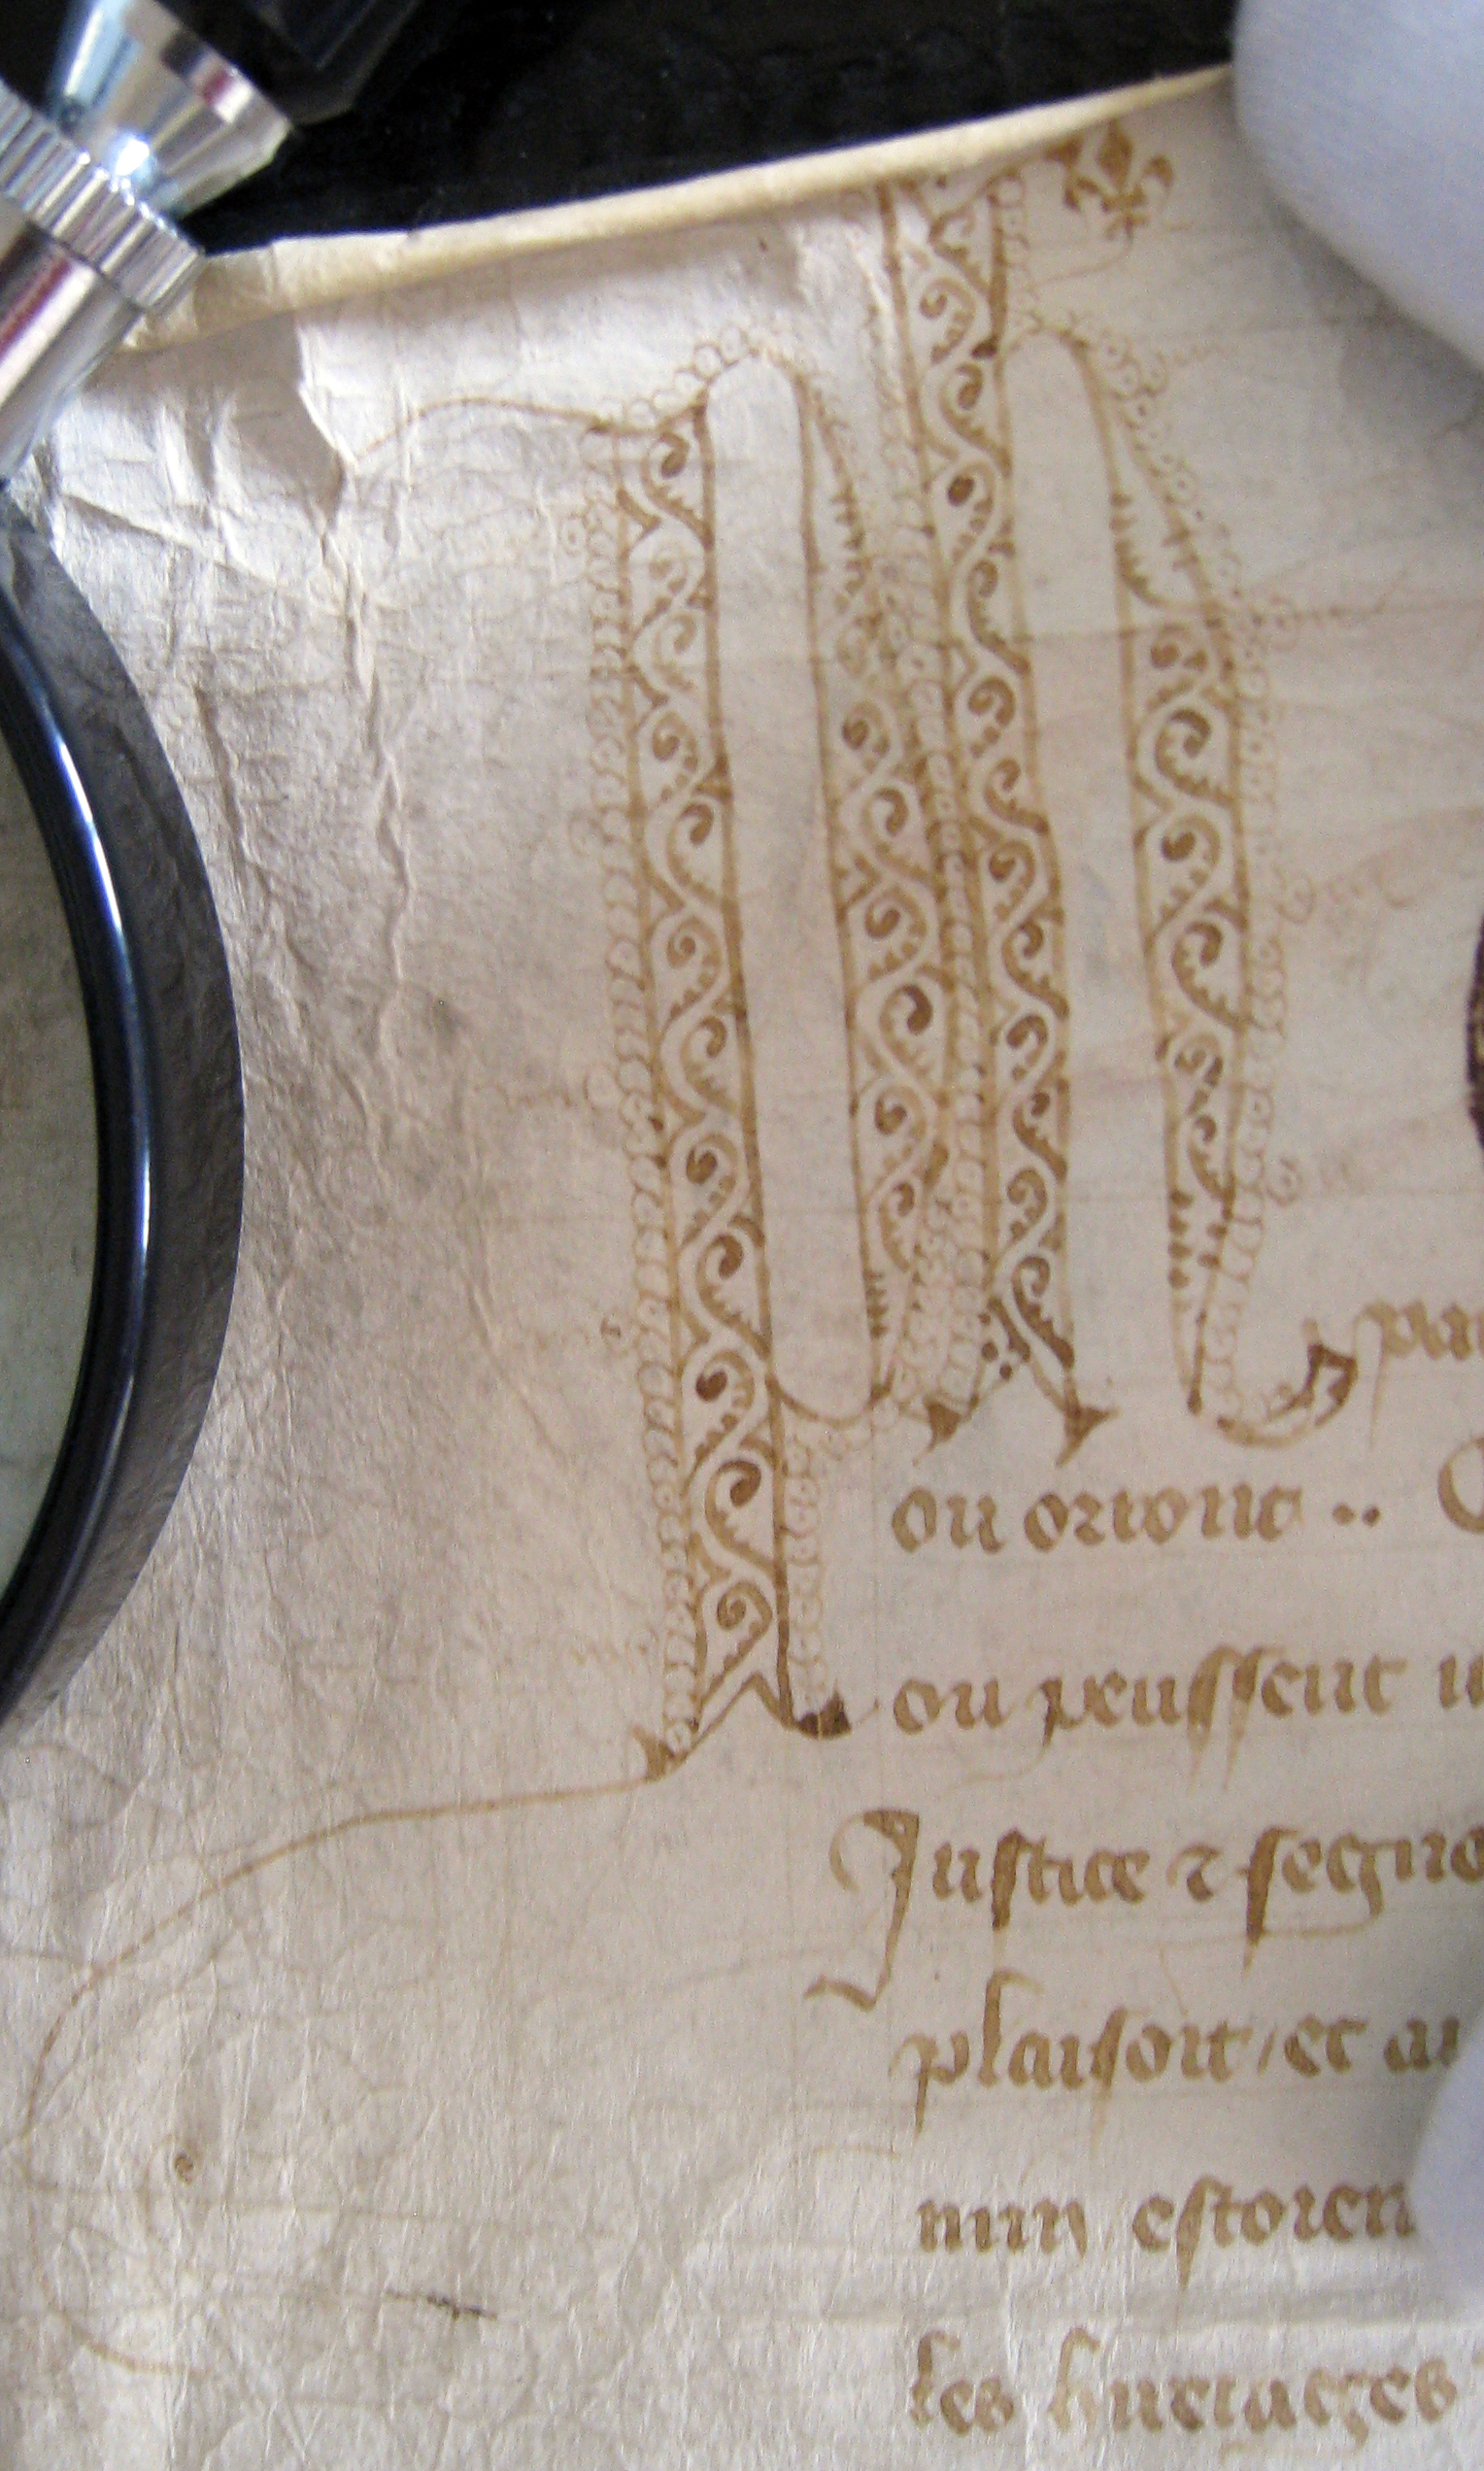 pa
ou oriont .. 
ou peussent
Justice ⁊ segno
plaisoit / et au
min estoien
les hiretages